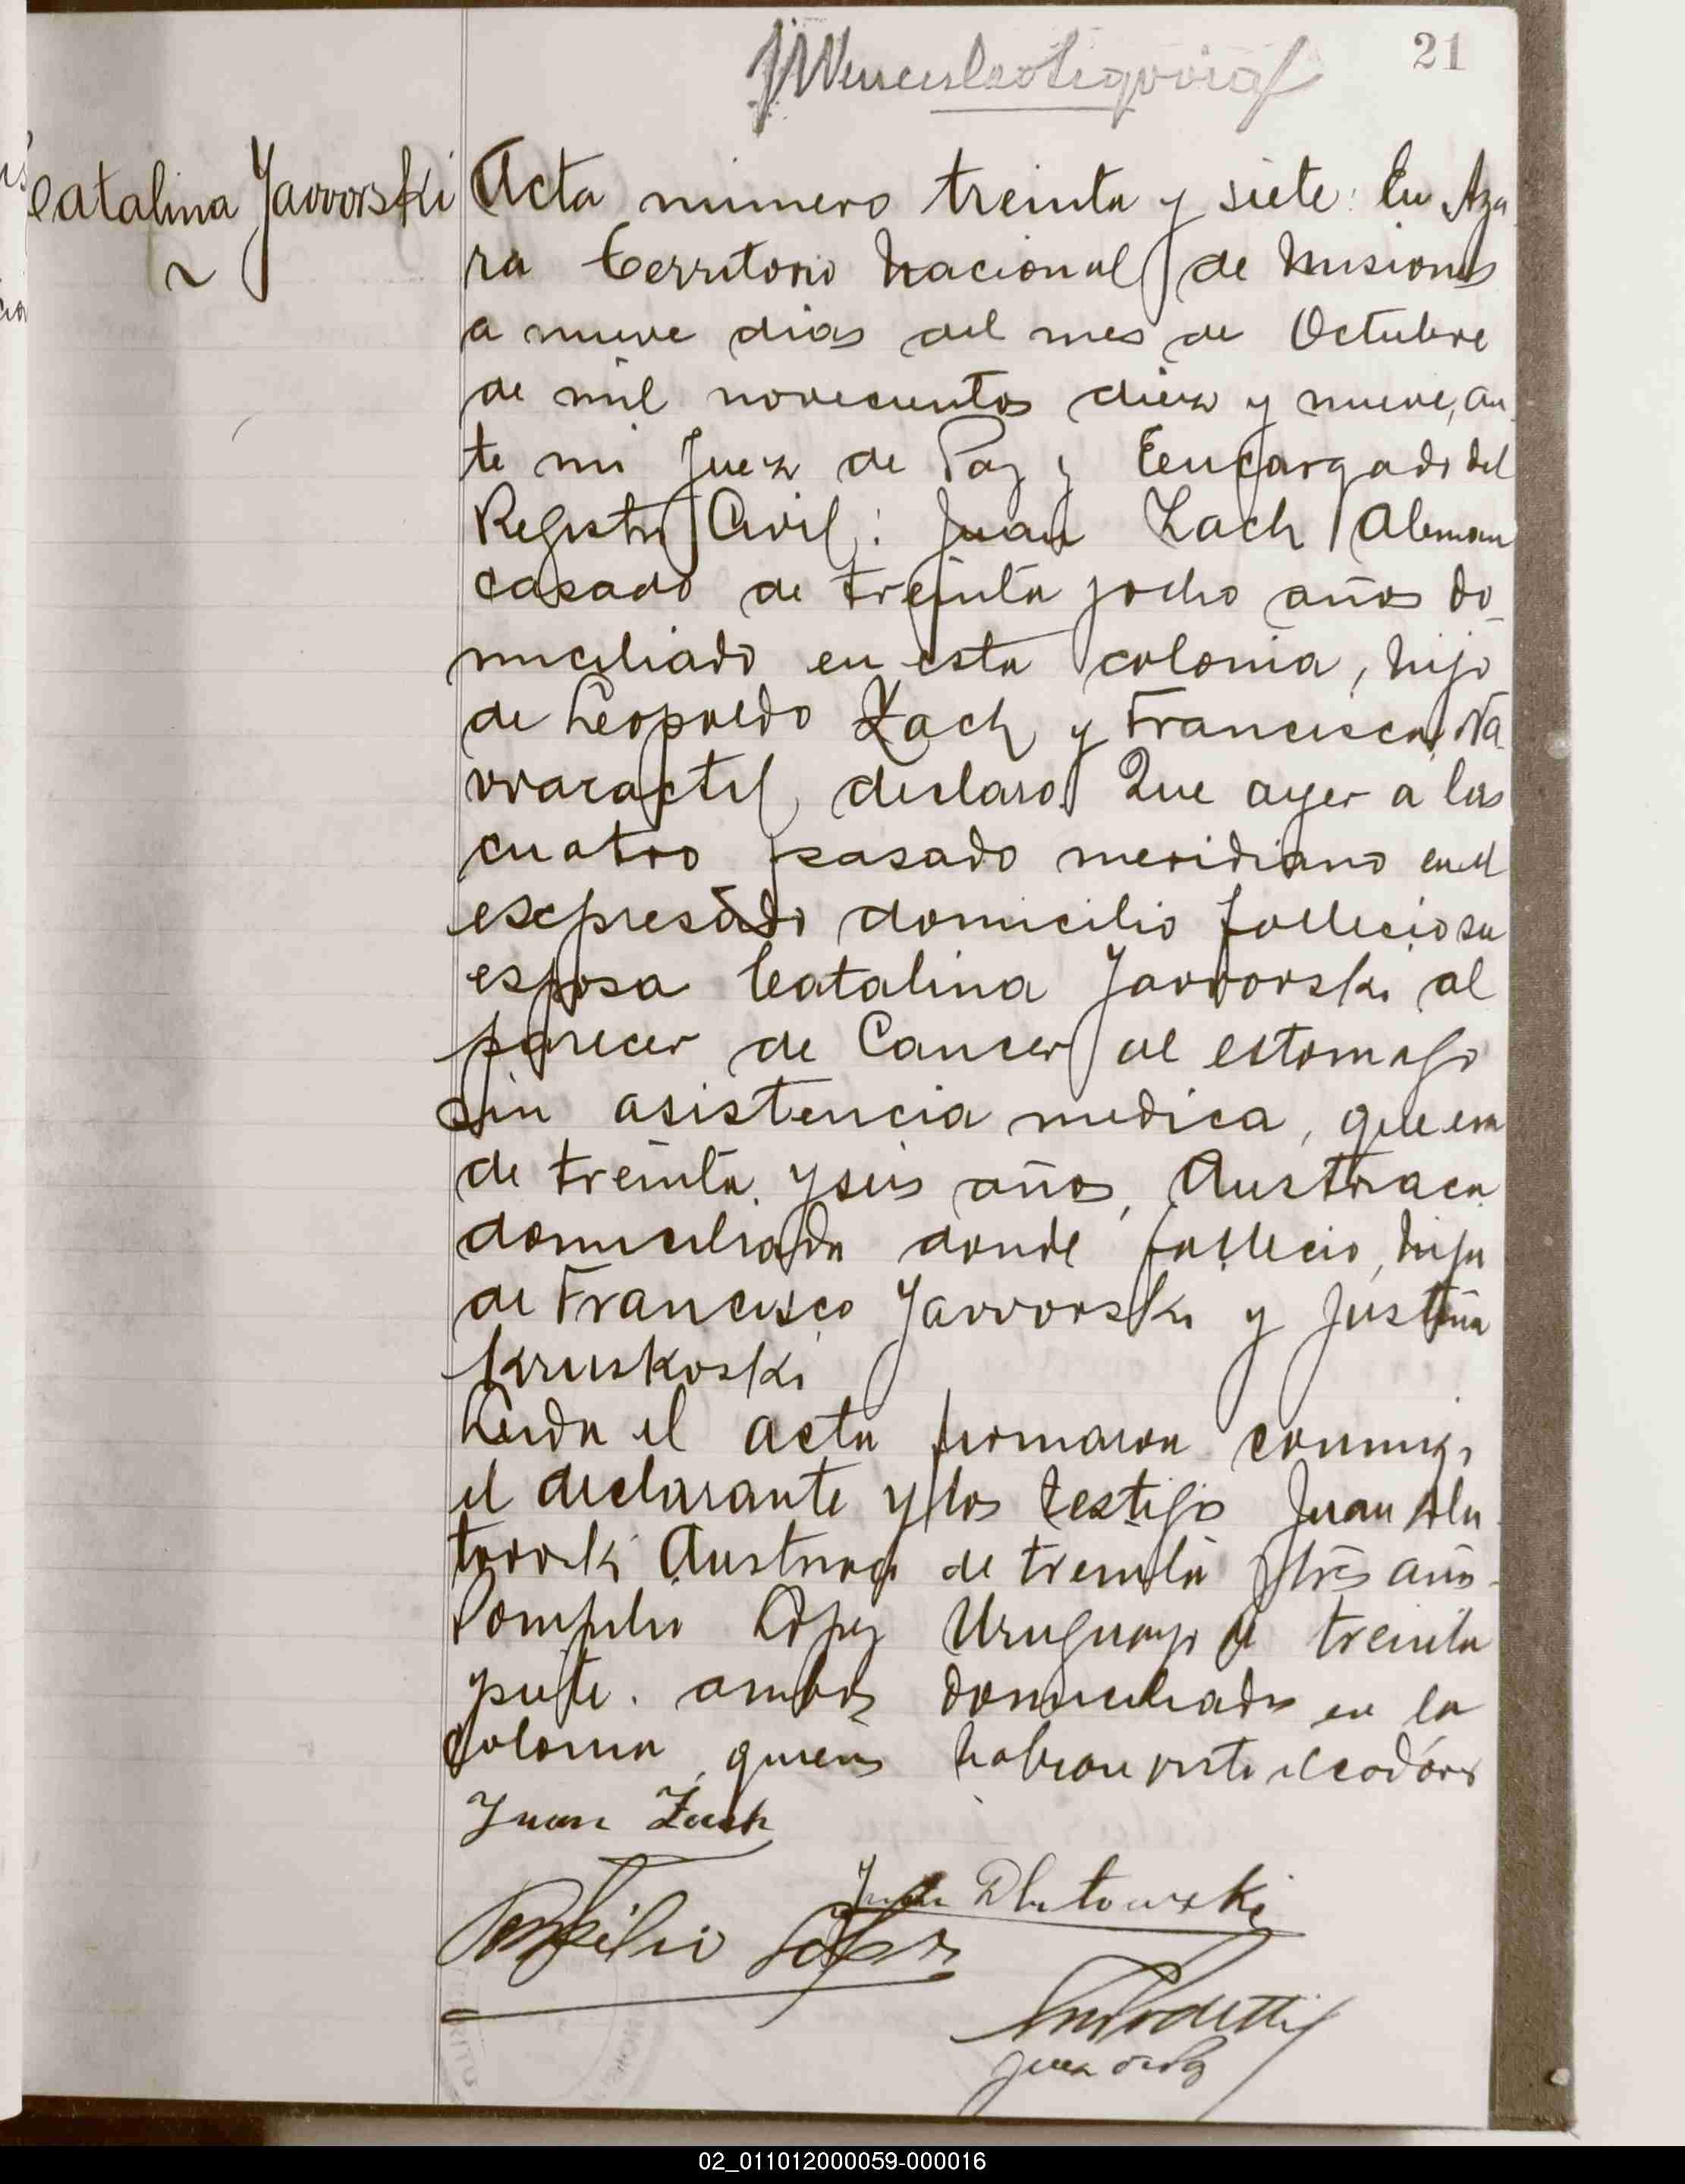 21
Catalina Javvorski
Acta numero treinta y siete: En Aza
ra Territorio Nacional de Misiones
a nueve dias del mes de Octubre
de mil novecientos diez y nueve, an
te mi Juez de Paz y Encargado del
Registro Civil: Juan Zach Aleman
casado de treinta y ocho años do
miciliado en esta colonia, hijo
de Leopoldo Zach y Francisca
declaro: Que ayer a las
cuatro pasado meridiano en el
expresado domicilio fallecio su
esposa Catalina Javvorski al
parecer de Cancer al estomago
sin asistencia medica, que era
de treinta y seis años, Austriaca
domiciliada donde fallecio, hija
de Francisco Javvorski y Justina
Kruskoski
Leida el acta firmaron conmigo
el declarante y los testigos Juan Dlu
tovvski Austriaco de treinta y tres años
Pompilio López Uruguayo de treinta
y siete. ambos domiciliados en la
colonia, quienes habian visto el cadáver
Juan Zach
Juan Dlutowski
Pompilio López
Juez de Paz
02_011012000059-000016